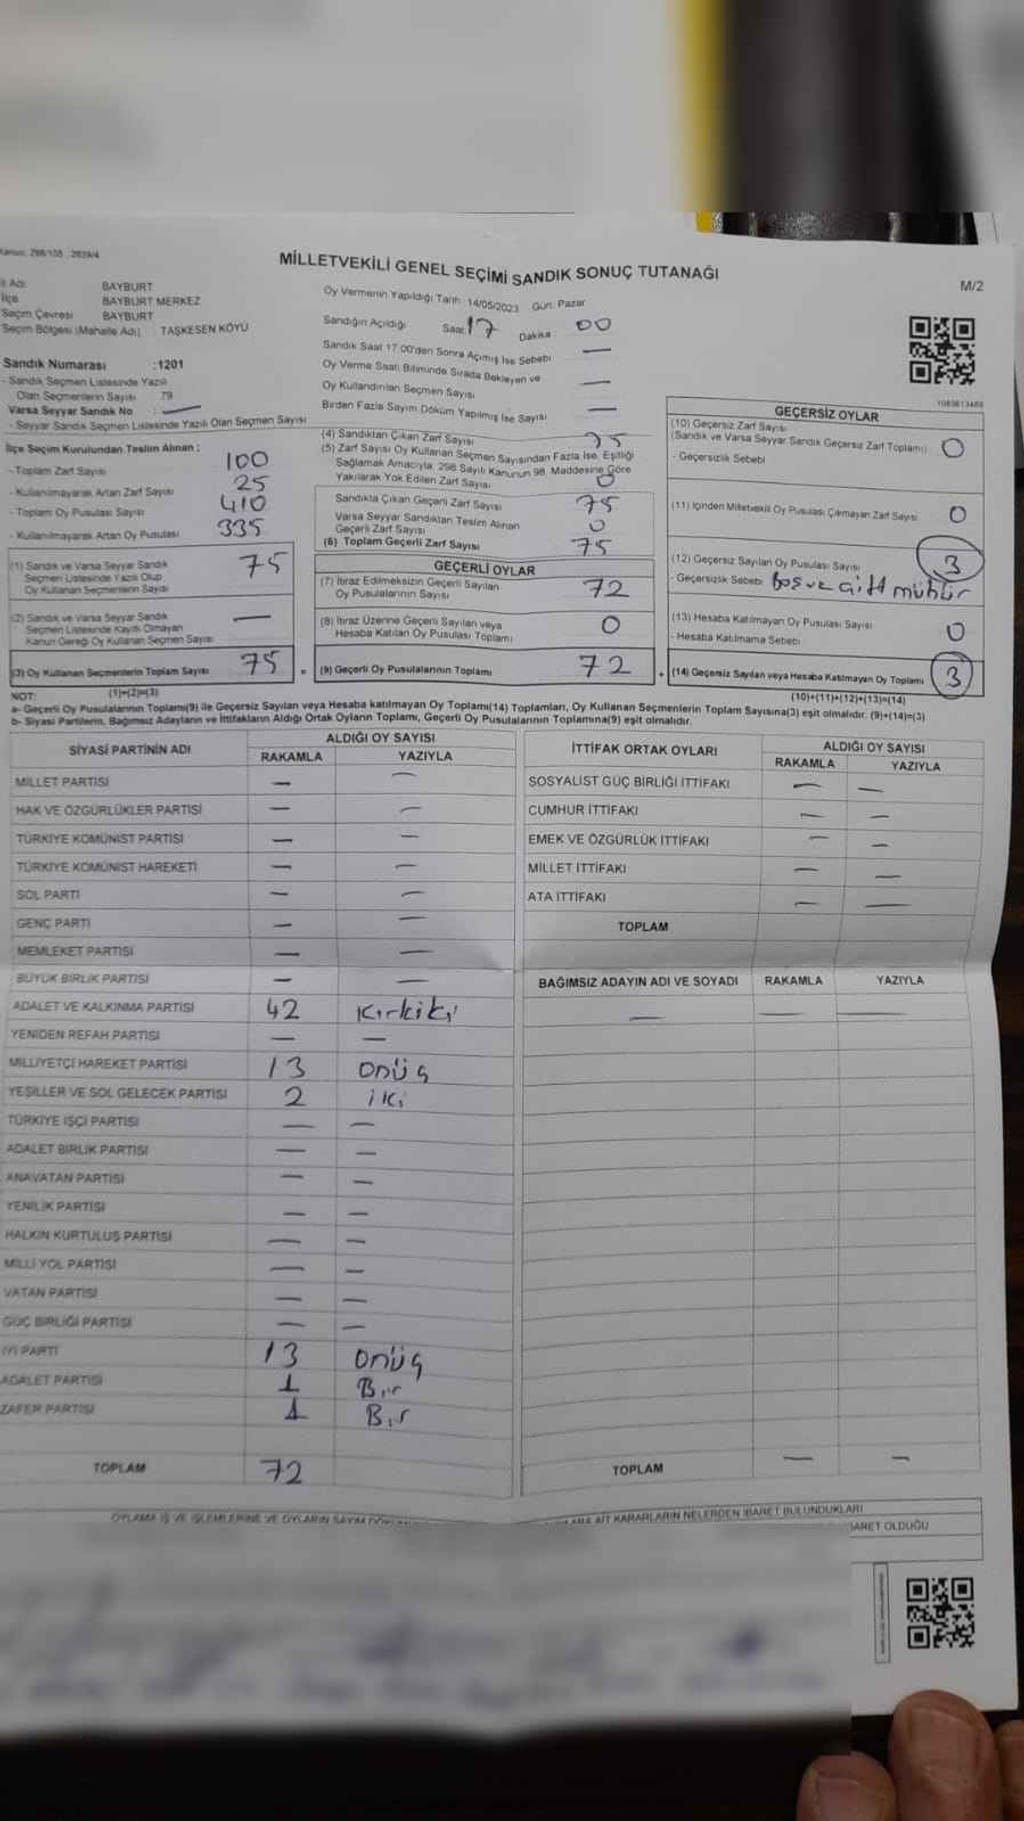 MİLLETVEKİLİ GENEL SEÇİMİ SANDIK SONUÇ TUTANAĞI
M/2
İl Adı BAYBURT
İlçe BAYBURT MERKEZ
Seçim Çevresi BAYBURT
Seçim Bölgesi (Mahalle Adı) TAŞKESEN KÖYÜ
Sandık Numarası :1201
- Sandık Seçmen Listesinde Yazılı
Olan Seçmenlerin Sayısı 79
Varsa Seyyar Sandık No : —
- Seyyar Sandık Seçmen Listesinde Yazılı Olan Seçmen Sayısı
İlçe Seçim Kurulundan Teslim Alınan :
- Toplam Zarf Sayısı 100
- Kullanılmayarak Artan Zarf Sayısı 25
- Toplam Oy Pusulası Sayısı 410
- Kullanılmayarak Artan Oy Pusulası 335
(1) Sandık ve Varsa Seyyar Sandık
Seçmen Listesinde Yazılı Olup
Oy Kullanan Seçmenlerin Sayısı 75
(2) Sandık ve Varsa Seyyar Sandık
Seçmen Listesinde Kayıtlı Olmayan
Kanun Gereği Oy Kullanan Seçmen Sayısı —
(3) Oy Kullanan Seçmenlerin Toplam Sayısı 75
(1)+(2)=(3)
Oy Vermenin Yapıldığı Tarih: 14/05/2023 Gün: Pazar
Sandığın Açıldığı Saat: 17 Dakika: 00
Sandık Saat 17.00'den Sonra Açılmış İse Sebebi —
Oy Verme Saati Bitiminde Sırada Bekleyen ve
Oy Kullandırılan Seçmen Sayısı —
Birden Fazla Sayım Döküm Yapılmış İse Sayısı —
(4) Sandıktan Çıkan Zarf Sayısı 75
(5) Zarf Sayısı Oy Kullanan Seçmen Sayısından Fazla İse, Eşitliği
Sağlamak Amacıyla, 298 Sayılı Kanunun 98. Maddesine Göre
Yakılarak Yok Edilen Zarf Sayısı 0
Sandıkta Çıkan Geçerli Zarf Sayısı 75
Varsa Seyyar Sandıktan Teslim Alınan
Geçerli Zarf Sayısı 0
(6) Toplam Geçerli Zarf Sayısı 75
GEÇERLİ OYLAR
(7) İtiraz Edilmeksizin Geçerli Sayılan
Oy Pusulalarının Sayısı 72
(8) İtiraz Üzerine Geçerli Sayılan veya
Hesaba Katılan Oy Pusulası Toplamı 0
(9) Geçerli Oy Pusulalarının Toplamı 72
GEÇERSİZ OYLAR
(10) Geçersiz Zarf Sayısı
(Sandık ve Varsa Seyyar Sandık Geçersiz Zarf Toplamı) 0
- Geçersizlik Sebebi
(11) İçinden Milletvekili Oy Pusulası Çıkmayan Zarf Sayısı 0
(12) Geçersiz Sayılan Oy Pusulası Sayısı 3
- Geçersizlik Sebebi Boş ve Çift mühür
(13) Hesaba Katılmayan Oy Pusulası Sayısı 0
- Hesaba Katılmama Sebebi
(14) Geçersiz Sayılan veya Hesaba Katılmayan Oy Toplamı 3
(10)+(11)+(12)+(13)=(14)
NOT:
a- Geçerli Oy Pusulalarının Toplamı(9) ile Geçersiz Sayılan veya Hesaba katılmayan Oy Toplamı(14) Toplamları, Oy Kullanan Seçmenlerin Toplam Sayısına(3) eşit olmalıdır. (9)+(14)=(3)
b- Siyasi Partilerin, Bağımsız Adayların ve İttifakların Aldığı Ortak Oyların Toplamı, Geçerli Oy Pusulalarının Toplamına(9) eşit olmalıdır.
SİYASİ PARTİNİN ADI ALDIĞI OY SAYISI
RAKAMLA YAZIYLA
MİLLET PARTİSİ — —
HAK VE ÖZGÜRLÜKLER PARTİSİ — —
TÜRKİYE KOMÜNİST PARTİSİ — —
TÜRKİYE KOMÜNİST HAREKETİ — —
SOL PARTİ — —
GENÇ PARTİ — —
MEMLEKET PARTİSİ — —
BÜYÜK BİRLİK PARTİSİ — —
ADALET VE KALKINMA PARTİSİ 42 Kırkiki
YENİDEN REFAH PARTİSİ — —
MİLLİYETÇİ HAREKET PARTİSİ 13 onüç
YEŞİLLER VE SOL GELECEK PARTİSİ 2 iki
TÜRKİYE İŞÇİ PARTİSİ — —
ADALET BİRLİK PARTİSİ — —
ANAVATAN PARTİSİ — —
YENİLİK PARTİSİ — —
HALKIN KURTULUŞ PARTİSİ — —
MİLLİ YOL PARTİSİ — —
VATAN PARTİSİ — —
GÜÇ BİRLİĞİ PARTİSİ — —
İYİ PARTİ 13 onüç
ADALET PARTİSİ 1 Bir
ZAFER PARTİSİ 1 Bir
TOPLAM 72
İTTİFAK ORTAK OYLARI ALDIĞI OY SAYISI
RAKAMLA YAZIYLA
SOSYALİST GÜÇ BİRLİĞİ İTTİFAKI — —
CUMHUR İTTİFAKI — —
EMEK VE ÖZGÜRLÜK İTTİFAKI — —
MİLLET İTTİFAKI — —
ATA İTTİFAKI — —
TOPLAM
BAĞIMSIZ ADAYIN ADI VE SOYADI RAKAMLA YAZIYLA
— — —
TOPLAM — —
OYLAMA İŞ VE İŞLEMLERİNE VE OYLARIN SAYIM
AİT KARARLARIN NELERDEN İBARET BULUNDUKLARI
İBARET OLDUĞU